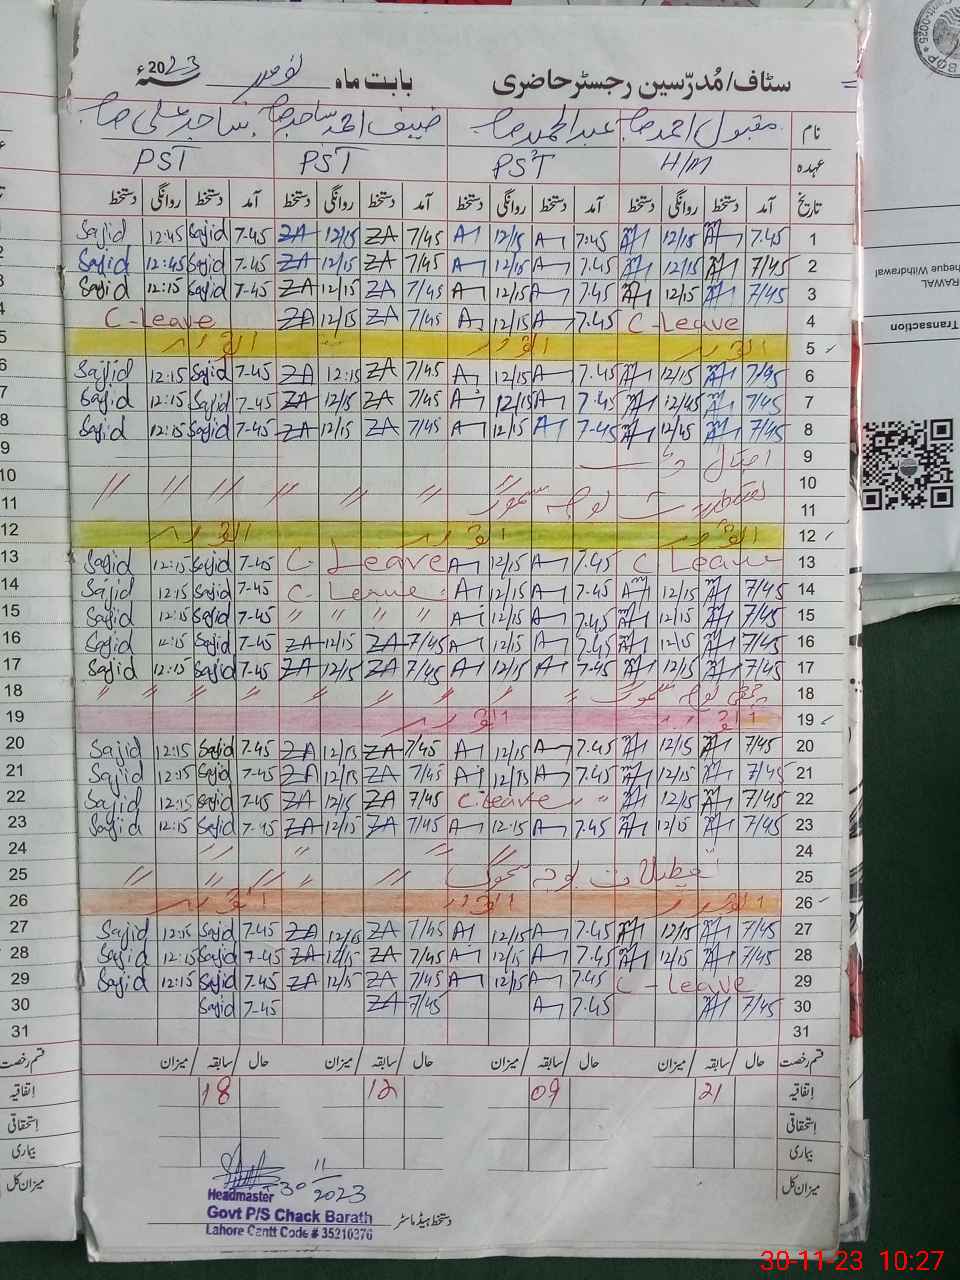 سٹاف/مُدرّسین رجسٹر حاضری بابت ماہ نومبر 2023ء
نام مقبول احمد صاحب عبدالحمید صاحب ساجد علی صاحب
عہدہ H/M PST PST PST
تاریخ آمد دستخط روانگی دستخط آمد دستخط روانگی دستخط آمد دستخط روانگی دستخط آمد دستخط روانگی دستخط
1 7.45 12/15 7:45 A 12/15 A 7/45 ZA 12/15 ZA 7-45 Sajid 12:45 Sajid
2 7/45 12/15 7.45 A 12/15 A 7/45 ZA 12/15 ZA 7-45 Sajid 12:45 Sajid
3 7/45 12/15 7.45 A 12/15 A 7/45 ZA 12/15 ZA 7-45 Sajid 12:15 Sajid
4 C-Leave 7.45 A 12/15 A 7/45 ZA 12/15 ZA C-Leave
5 اتوار اتوار اتوار
6 7/45 12/15 7.45 A 12/15 A 7/45 ZA 12:15 ZA 7-45 Sajid 12:15 Sajid
7 7/45 12/45 7.45 A 12/15 A 7/45 ZA 12/15 ZA 7-45 Sajid 12:15 Sajid
8 7/45 12/45 7-45 A 12/15 A 7/45 ZA 12/15 ZA 7-45 Sajid 12:15 Sajid
9
10
11 تعطیلات بوجہ سموگ " " " " " "
12 اتوار اتوار اتوار
13 C Leave 7.45 A 12/15 A C Leave 7-45 Sajid 12:15 Sajid
14 7/45 12/15 7.45 A 12/15 A C-Leave 7-45 Sajid 12:15 Sajid
15 7/45 12/15 7.45 A 12/15 A " " " " 7-45 Sajid 12:15 Sajid
16 7/45 12/15 7.45 A 12/15 A 7/45 ZA 12/15 ZA 7-45 Sajid 12:15 Sajid
17 7/45 12/15 7-45 A 12/15 A 7/45 ZA 12/15 ZA 7-45 Sajid 12:15 Sajid
18 چھٹی بوجہ سموگ " " " " " " " "
19 اتوار اتوار
20 7/45 12/15 7.45 A 12/15 A 7/45 ZA 12/15 ZA 7-45 Sajid 12:15 Sajid
21 7/45 12/15 7.45 A 12/15 A 7/45 ZA 12/15 ZA 7-45 Sajid 12:15 Sajid
22 7/45 12/15 C.Leave " " 7/45 ZA 12/15 ZA 7-45 Sajid 12:15 Sajid
23 7/45 12/15 7.45 A 12:15 A 7/45 ZA 12/15 ZA 7-45 Sajid 12:15 Sajid
24 " " " "
25 تعطیلات بوجہ سموگ " " " " "
26 اتوار اتوار اتوار
27 7/45 12/15 7.45 A 12/15 A 7/45 ZA 12/15 ZA 7-45 Sajid 12:15 Sajid
28 7/45 12/15 7.45 A 12/15 A 7/45 ZA 12/15 ZA 7-45 Sajid 12:15 Sajid
29 C-Leave 7.45 A 12/15 A 7/45 ZA 12/15 ZA 7.45 Sajid 12:15 Sajid
30 7/45 7.45 A 7/45 ZA 7-45 Sajid
31
قسم رخصت حال / سابقہ / میزان حال / سابقہ / میزان حال / سابقہ / میزان حال / سابقہ / میزان
اتفاقیہ 21 09 12 18
اِستحقاقی
بیماری
میزان کل
30 11/2023
Headmaster
Govt P/S Chack Barath
Lahore Cantt Code # 35210376
دستخط ہیڈ ماسٹر
heque Withdrawal
RAWAL
Transaction
30-11-23 10:27